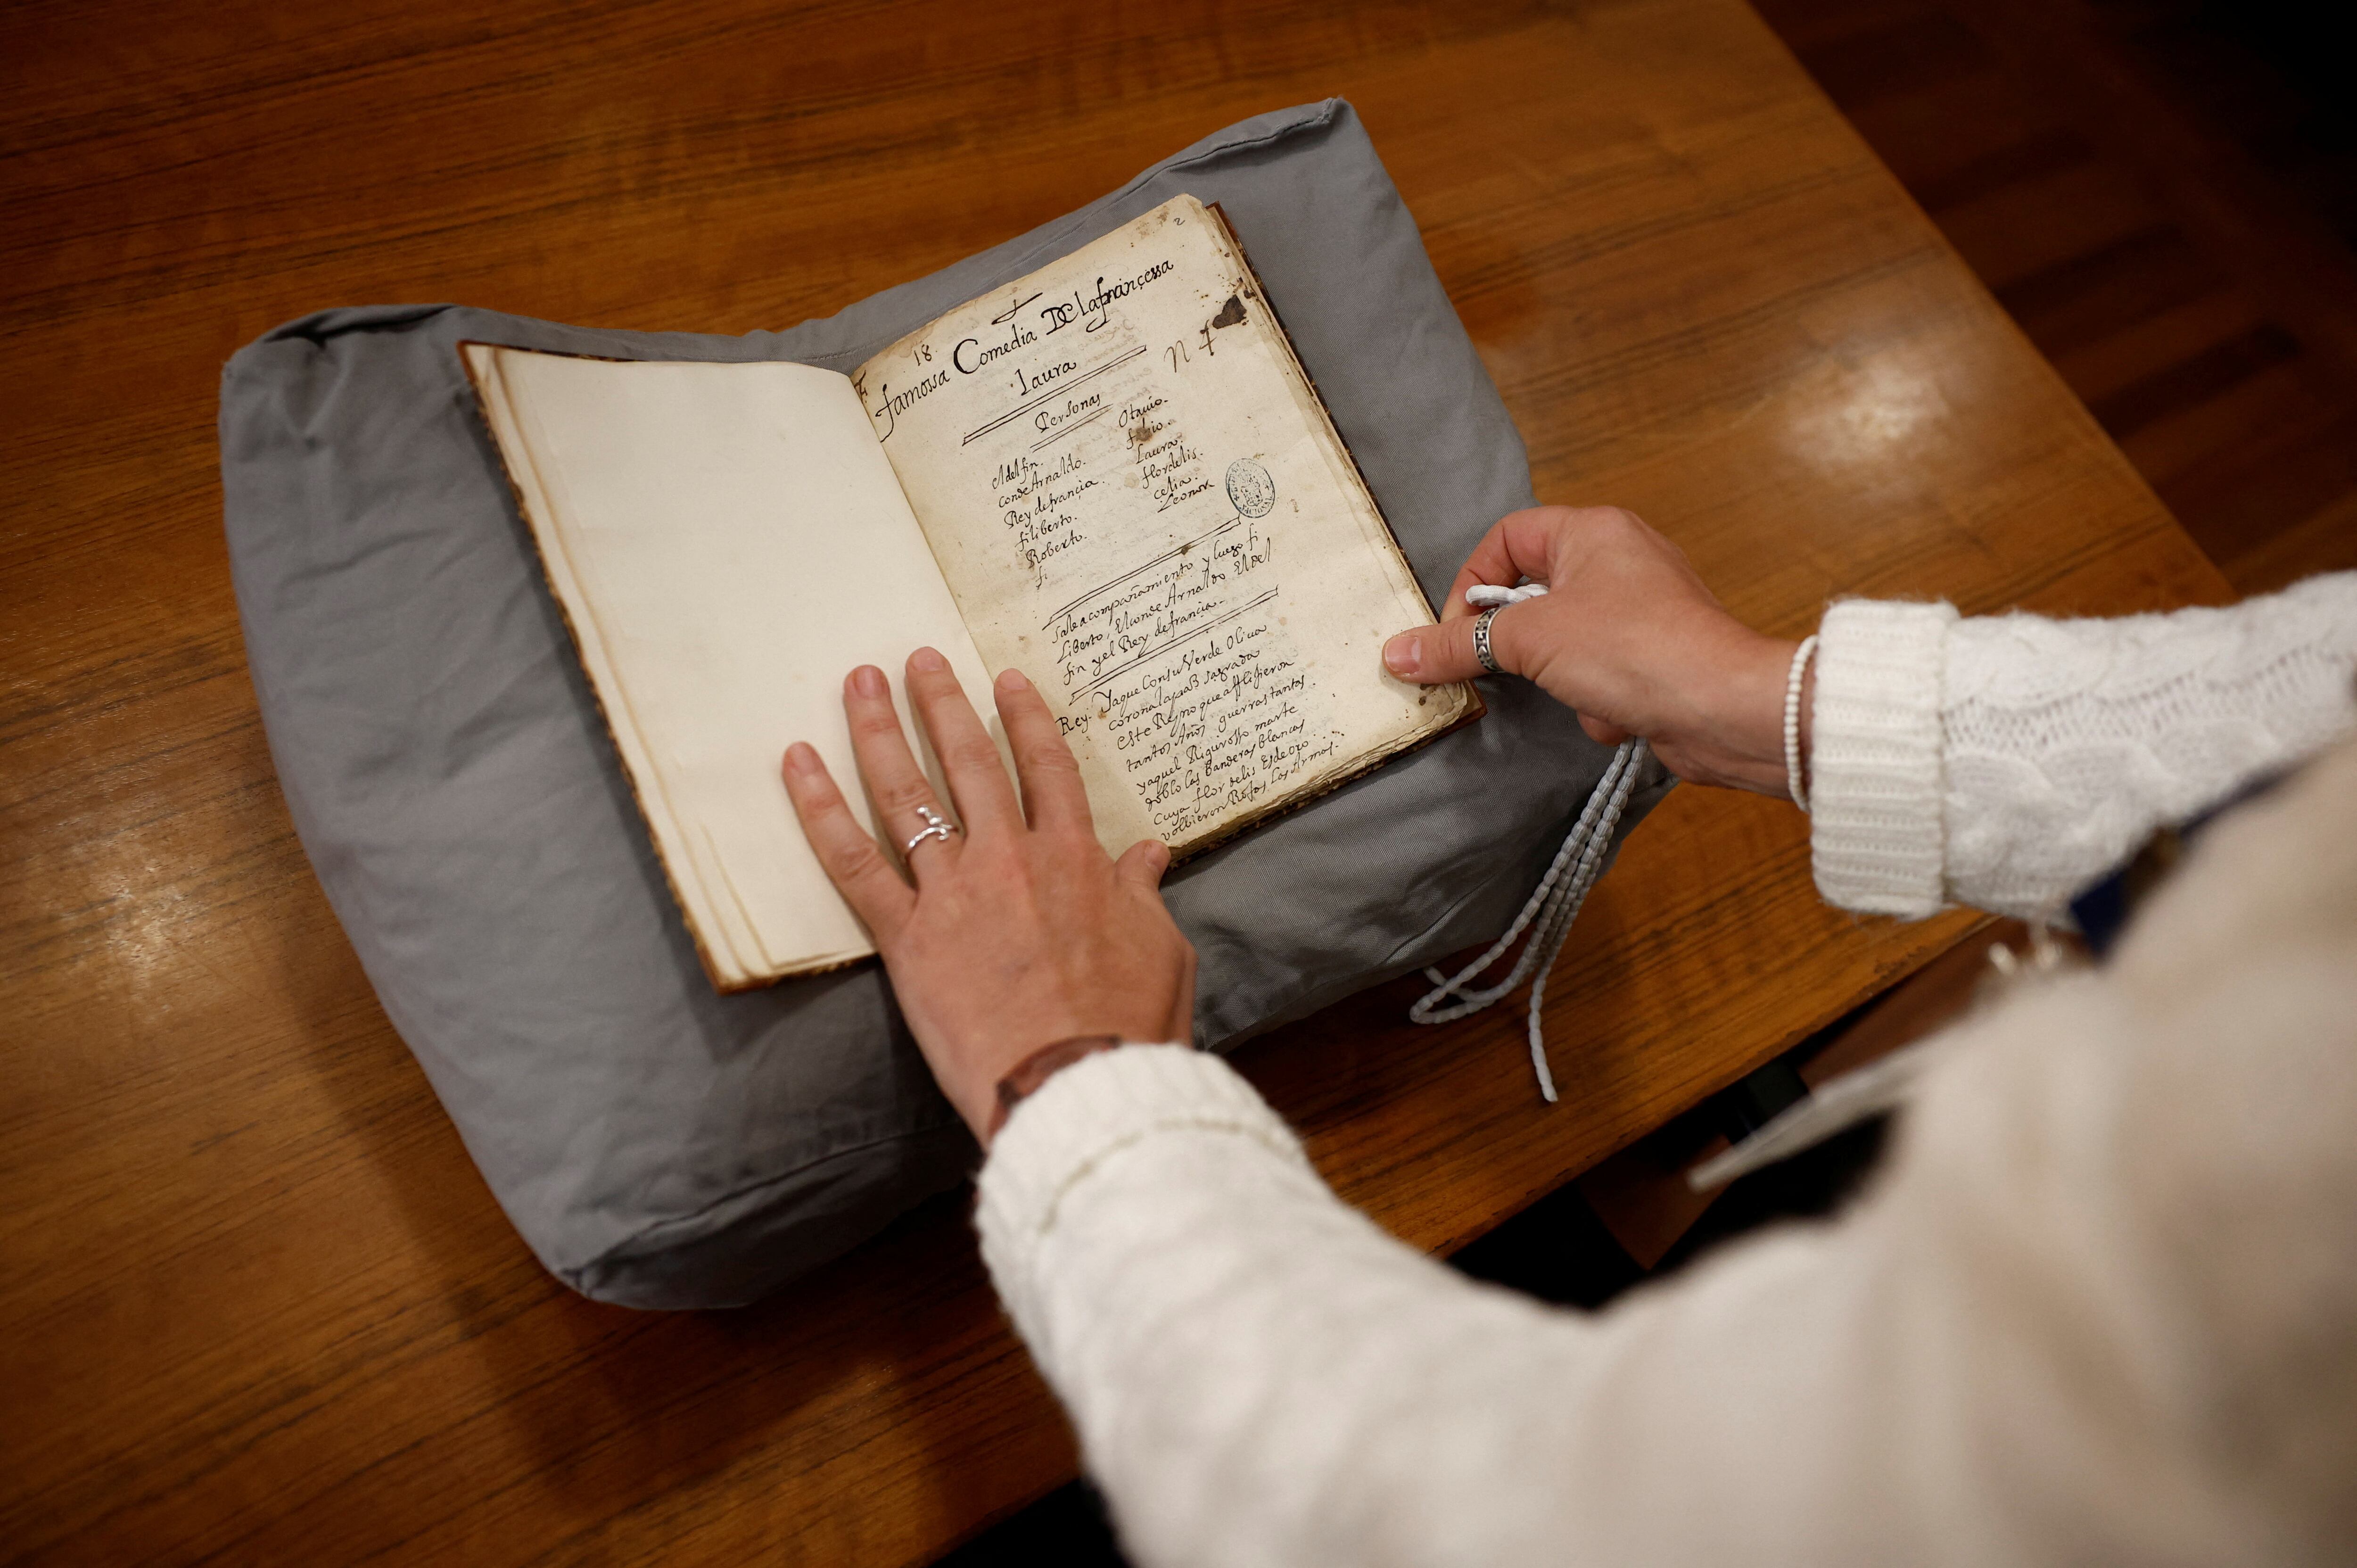 2
18
famossa Comedia De lafrancessa
Laura
n 4
Personas
eldelfin.
conde Arnaldo.
Rey de francia.
filiberto.
Roberto.
fi
Otauio.
fabio.
Laura.
flordelis.
celia.
Leonor
Sale acompañamiento y luego fi
liberto, El conde Arnaldo El del
fin y el Rey de francia.
Rey. Ya que Consu Verde Oliua
corona la paz sagrada
este Reyno que afflifieron
tantos Años guerras tantas.
ya que el Rigurosso marte
doblo las Banderas blancas
cuya flor delis Es de oro
volbieron Rojas Las Armas.